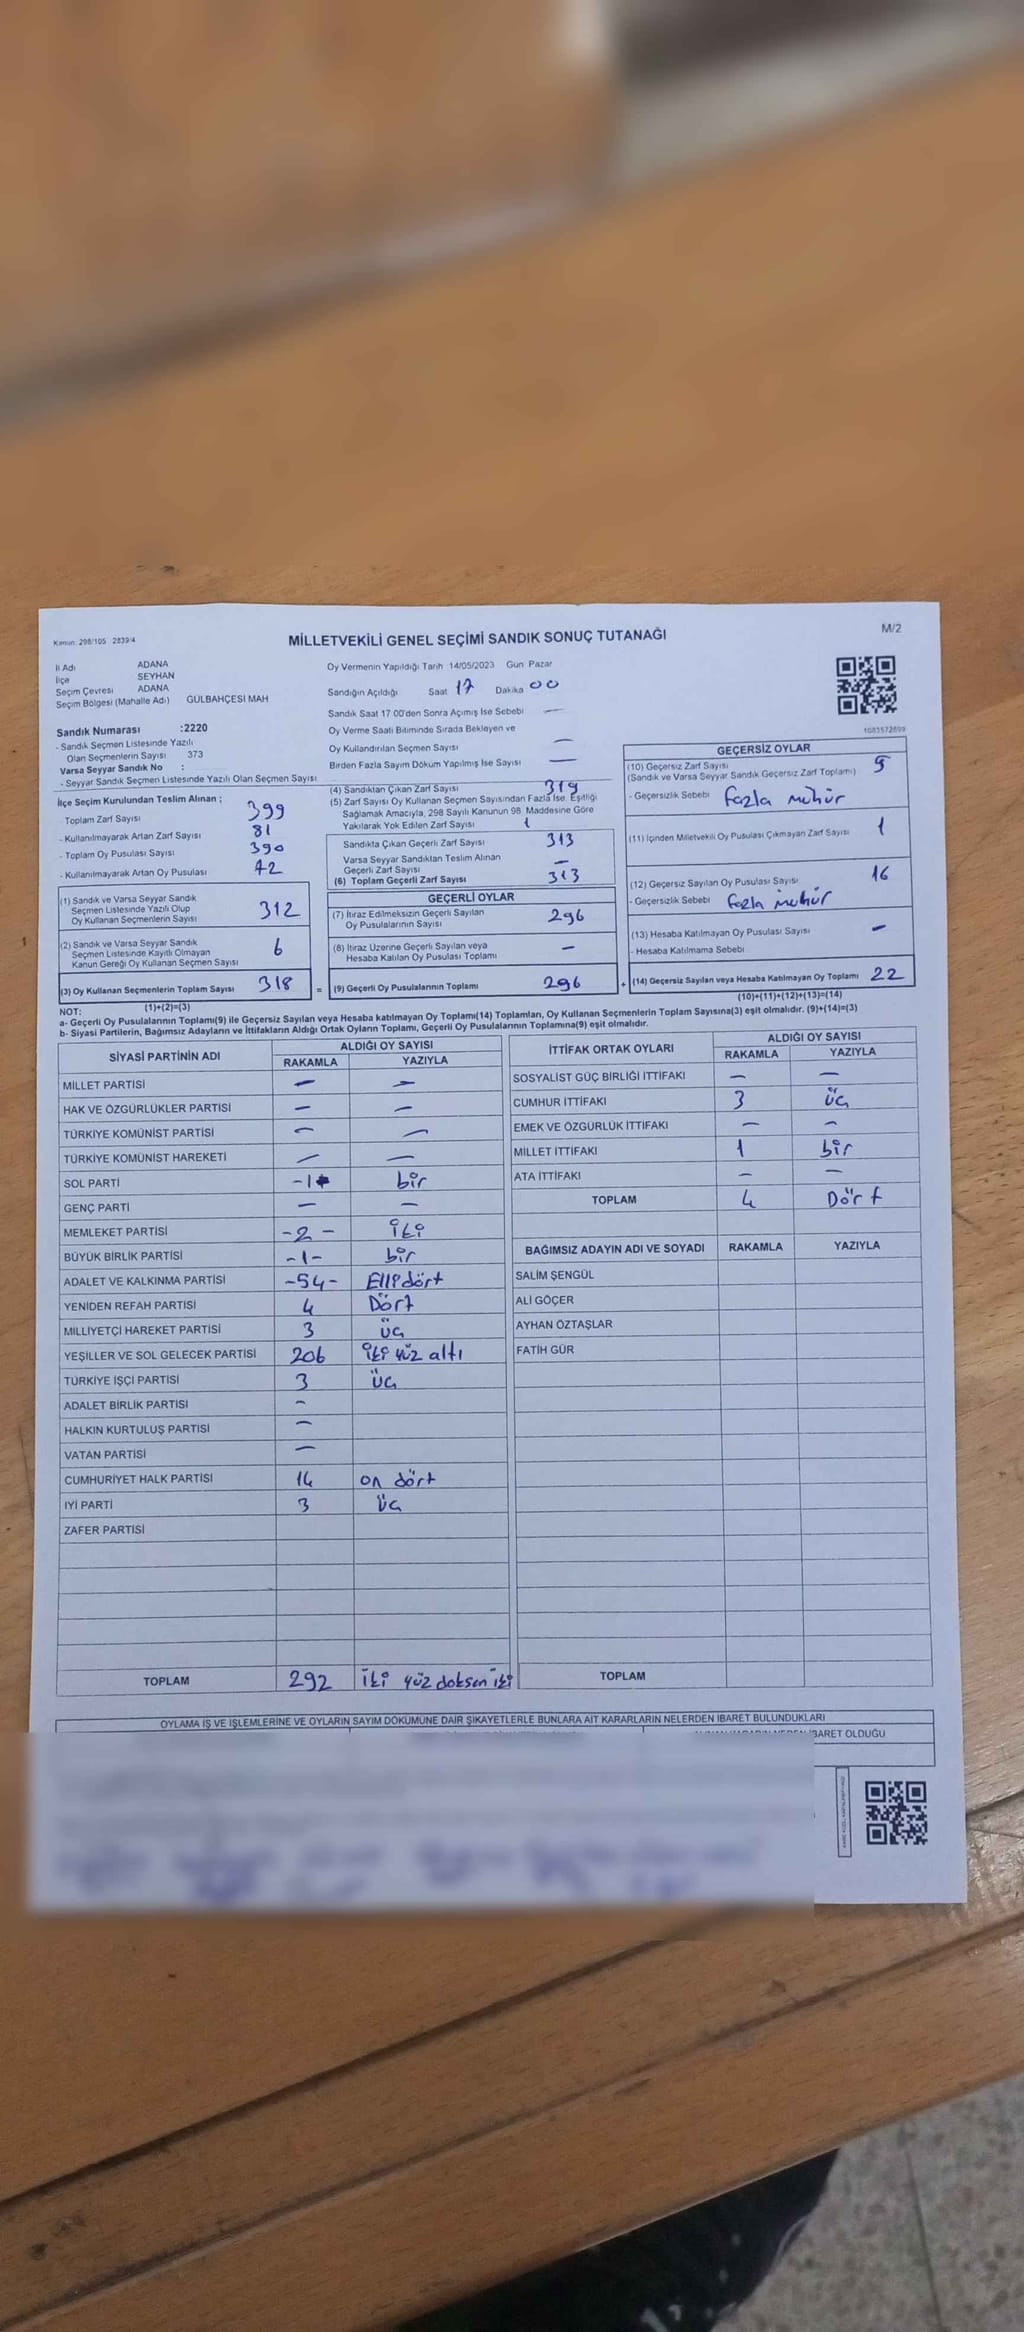 Kanun: 298/105 2839/4
MİLLETVEKİLİ GENEL SEÇİMİ SANDIK SONUÇ TUTANAĞI
M/2
İl Adı ADANA
İlçe SEYHAN
Seçim Çevresi ADANA
Seçim Bölgesi (Mahalle Adı) GÜLBAHÇESİ MAH
Oy Vermenin Yapıldığı Tarih 14/05/2023 Gün Pazar
Sandığın Açıldığı Saat 17 Dakika 00
Sandık Saat 17:00'den Sonra Açımış İse Sebebi —
Oy Verme Saati Bitiminde Sırada Bekleyen ve
Oy Kullandırılan Seçmen Sayısı —
Birden Fazla Sayım Döküm Yapılmış İse Sayısı —
Sandık Numarası :2220
- Sandık Seçmen Listesinde Yazılı
Olan Seçmenlerin Sayısı 373
Varsa Seyyar Sandık No :
- Seyyar Sandık Seçmen Listesinde Yazılı Olan Seçmen Sayısı
İlçe Seçim Kurulundan Teslim Alınan ;
- Toplam Zarf Sayısı 399
- Kullanılmayarak Artan Zarf Sayısı 81
- Toplam Oy Pusulası Sayısı 390
- Kullanılmayarak Artan Oy Pusulası 72
(1) Sandık ve Varsa Seyyar Sandık
Seçmen Listesinde Yazılı Olup
Oy Kullanan Seçmenlerin Sayısı 312
(2) Sandık ve Varsa Seyyar Sandık
Seçmen Listesinde Kayıtlı Olmayan
Kanun Gereği Oy Kullanan Seçmen Sayısı 6
(3) Oy Kullanan Seçmenlerin Toplam Sayısı 318 =
(1)+(2)=(3)
(4) Sandıktan Çıkan Zarf Sayısı 319
(5) Zarf Sayısı Oy Kullanan Seçmen Sayısından Fazla İse Eşitliği
Sağlamak Amacıyla, 298 Sayılı Kanunun 98. Maddesine Göre
Yakılarak Yok Edilen Zarf Sayısı 1
Sandıkta Çıkan Geçerli Zarf Sayısı 313
Varsa Seyyar Sandıktan Teslim Alınan
Geçerli Zarf Sayısı —
(6) Toplam Geçerli Zarf Sayısı 313
GEÇERLİ OYLAR
(7) İtiraz Edilmeksizin Geçerli Sayılan
Oy Pusulalarının Sayısı 296
(8) İtiraz Üzerine Geçerli Sayılan veya
Hesaba Katılan Oy Pusulası Toplamı —
(9) Geçerli Oy Pusulalarının Toplamı 296 +
1083572899
GEÇERSİZ OYLAR
(10) Geçersiz Zarf Sayısı 5
(Sandık ve Varsa Seyyar Sandık Geçersiz Zarf Toplamı)
- Geçersizlik Sebebi fazla mühür
(11) İçinden Milletvekili Oy Pusulası Çıkmayan Zarf Sayısı 1
(12) Geçersiz Sayılan Oy Pusulası Sayısı 16
- Geçersizlik Sebebi fazla mühür
(13) Hesaba Katılmayan Oy Pusulası Sayısı —
- Hesaba Katılmama Sebebi
(14) Geçersiz Sayılan veya Hesaba Katılmayan Oy Toplamı 22
(10)+(11)+(12)+(13)=(14)
NOT:
a- Geçerli Oy Pusulalarının Toplamı(9) ile Geçersiz Sayılan veya Hesaba katılmayan Oy Toplamı(14) Toplamları, Oy Kullanan Seçmenlerin Toplam Sayısına(3) eşit olmalıdır. (9)+(14)=(3)
b- Siyasi Partilerin, Bağımsız Adayların ve İttifakların Aldığı Ortak Oyların Toplamı, Geçerli Oy Pusulalarının Toplamına(9) eşit olmalıdır.
SİYASİ PARTİNİN ADI ALDIĞI OY SAYISI
RAKAMLA YAZIYLA
MİLLET PARTİSİ — —
HAK VE ÖZGÜRLÜKLER PARTİSİ — —
TÜRKİYE KOMÜNİST PARTİSİ — —
TÜRKİYE KOMÜNİST HAREKETİ — —
SOL PARTİ -1- bir
GENÇ PARTİ — —
MEMLEKET PARTİSİ -2- iki
BÜYÜK BİRLİK PARTİSİ -1- bir
ADALET VE KALKINMA PARTİSİ -54- Ellidört
YENİDEN REFAH PARTİSİ 4 Dört
MİLLİYETÇİ HAREKET PARTİSİ 3 üç
YEŞİLLER VE SOL GELECEK PARTİSİ 206 iki yüz altı
TÜRKİYE İŞÇİ PARTİSİ 3 üç
ADALET BİRLİK PARTİSİ —
HALKIN KURTULUŞ PARTİSİ —
VATAN PARTİSİ —
CUMHURİYET HALK PARTİSİ 14 on dört
İYİ PARTİ 3 üç
ZAFER PARTİSİ
TOPLAM 292 iki yüz doksan iki
İTTİFAK ORTAK OYLARI ALDIĞI OY SAYISI
RAKAMLA YAZIYLA
SOSYALİST GÜÇ BİRLİĞİ İTTİFAKI — —
CUMHUR İTTİFAKI 3 üç
EMEK VE ÖZGÜRLÜK İTTİFAKI — —
MİLLET İTTİFAKI 1 bir
ATA İTTİFAKI — —
TOPLAM 4 Dört
BAĞIMSIZ ADAYIN ADI VE SOYADI RAKAMLA YAZIYLA
SALİM ŞENGÜL
ALİ GÖÇER
AYHAN ÖZTAŞLAR
FATİH GÜR
TOPLAM
OYLAMA İŞ VE İŞLEMLERİNE VE OYLARIN SAYIM DÖKÜMÜNE DAİR ŞİKAYETLERLE BUNLARA AİT KARARLARIN NELERDEN İBARET BULUNDUKLARI
İBARET OLDUĞU